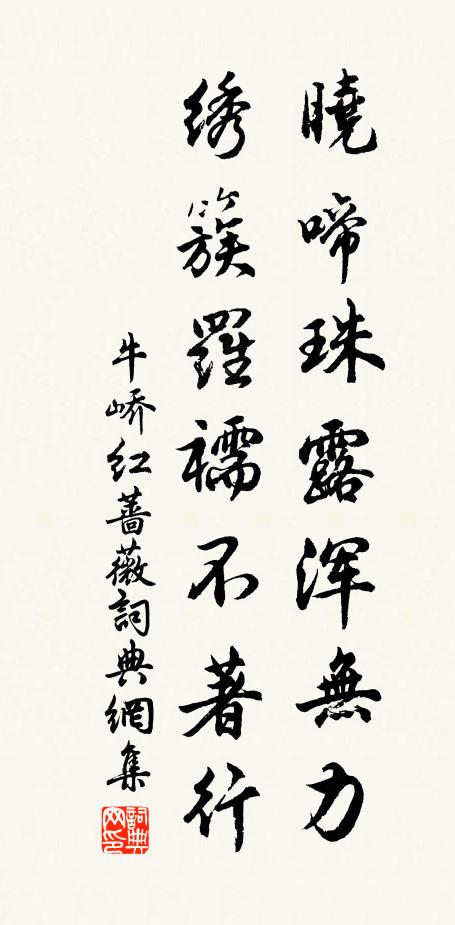 曉啼珠露渾無力
绣簇羅襦不著行
牛嶠红薔薇詞典網集
詞典网印